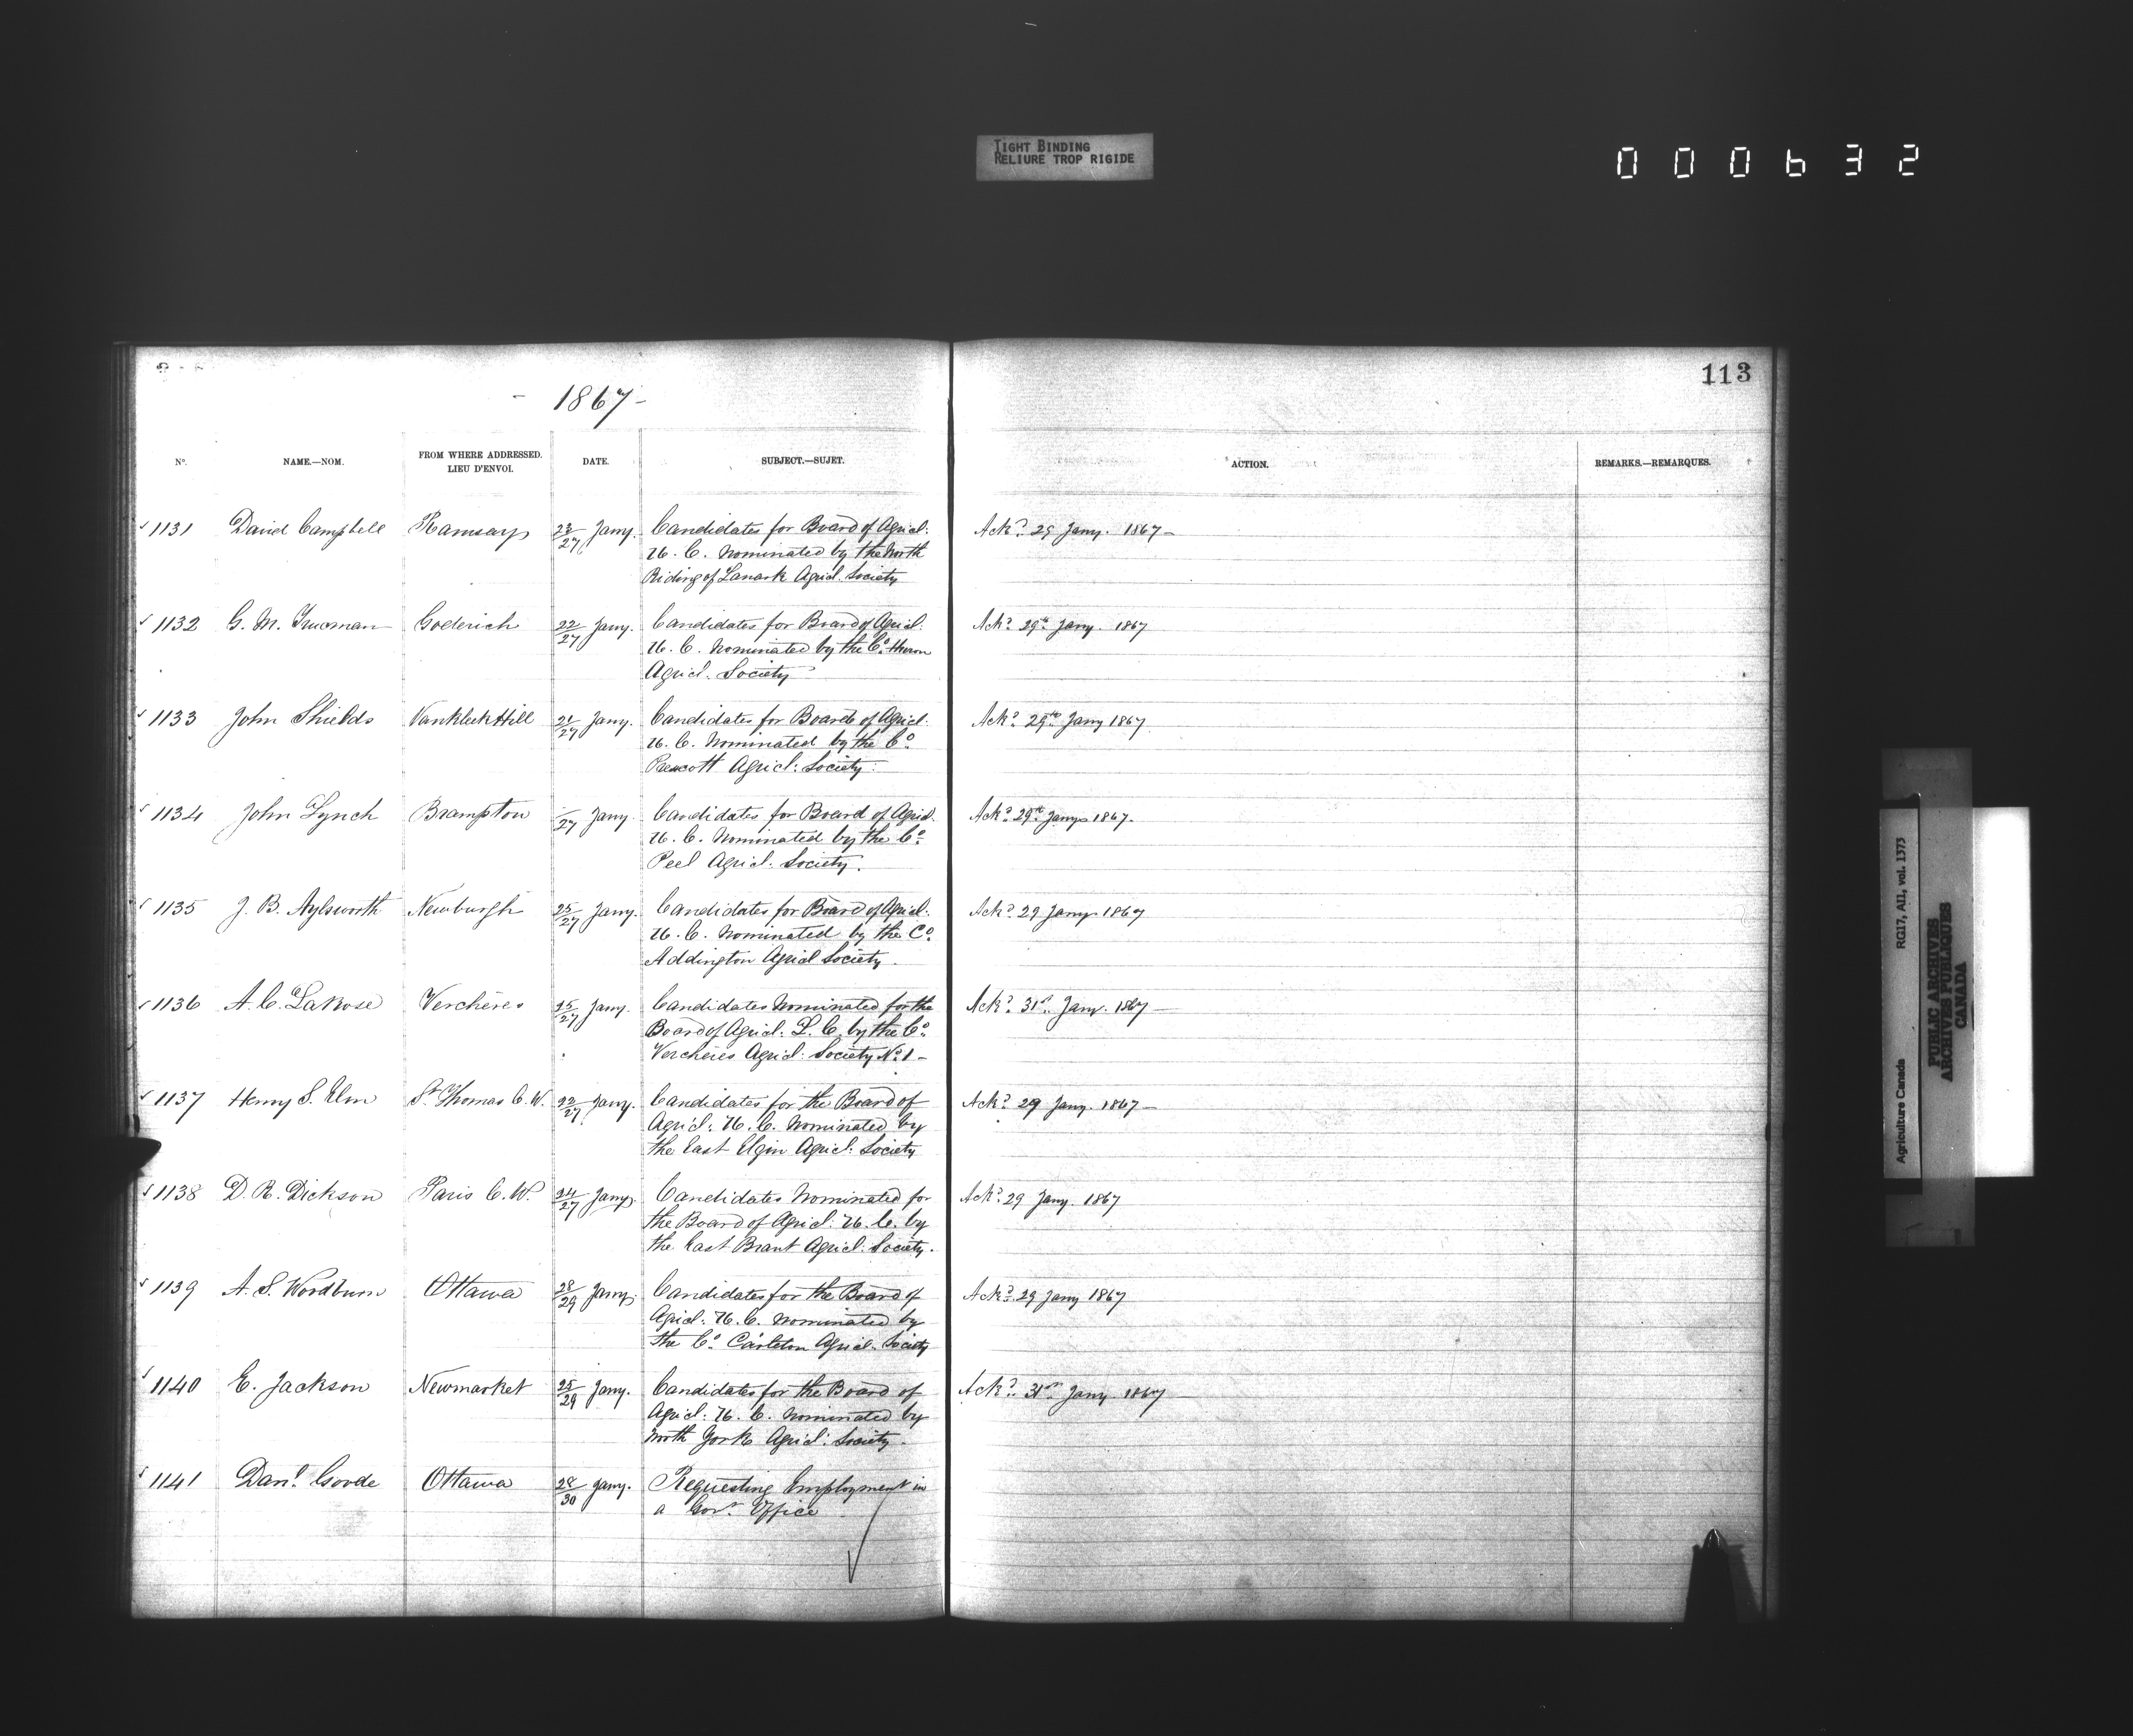 TIGHT BINDING
RELIURE TROP RIGIDE
000632
113
- 1867 -
No. NAME.—NOM. FROM WHERE ADDRESSED. LIEU D'ENVOI. DATE. SUBJECT.—SUJET. ACTION. REMARKS.—REMARQUES.
1131 David Campbell Ramsay 23/27 Jany. Candidates for Board of Agricl: Ackd. 29 Jany. 1867 –
U. C. Nominated by the North
Riding of Lanark Agricl. Society
1132 G. M. Trueman Goderich 22/27 Jany. Candidates for Board of Agricl. Ackd. 29th Jany. 1867
U. C. Nominated by the Co. Huron
Agricl. Society
1133 John Shields Vankleek Hill 21/27 Jany. Candidates for Board of Agricl. Ackd. 29th Jany 1867
U. C. Nominated by the Co.
Prescott Agricl: Society.
1134 John Lynch Brampton /27 Jany Candidates for Board of Agricl. Ackd. 29th Jany 1867.
U. C. Nominated by the Co.
Peel Agricl. Society.
1135 J. B. Aylsworth Newburgh 25/27 Jany. Candidates for Board of Agricl. Ackd. 29 Jany 1867
U. C. Nominated by the Co.
Addington Agricl Society.
1136 A. C. LaRose Verchères 25/27 Jany. Candidates Nominated for the Ackd. 31st. Jany. 1867 —
Board of Agricl. L. C. by the Co.
Verchères Agricl: Society No. 1 –
1137 Henry S. St. Thomas C. W. 22/27 Jany. Candidates for the Board of Ackd. 29 Jany. 1867 –
Agricl: U. C. Nominated by
the East Elgin Agricl: Society
1138 D. R. Dickson Paris C. W. 24/27 Jany. Candidates Nominated for Ackd. 29 Jany. 1867
the Board of Agricl: U. C. by
the East Brant Agricl: Society.
1139 A. S. Woodburn Ottawa 28/29 Jany. Candidates for the Board of Ackd. 29 Jany 1867
Agricl: U. C. Nominated by
the Co. Carleton Agricl. Society
1140 E. Jackson Newmarket 25/29 Jany. Candidates for the Board of Ackd. 31st Jany 1867
Agricl: U. C. Nominated by
North York Agricl: Society.
1141 Danl. Goode Ottawa 28/30 Jany. Requesting Employment in
a Govt. Office
Agriculture Canada RG17, AII, vol. 1373
PUBLIC ARCHIVES
ARCHIVES PUBLIQUES
CANADA